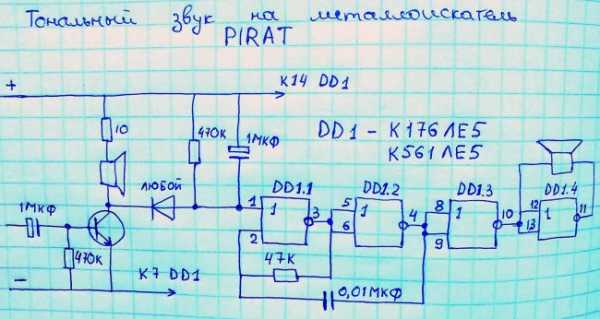 Тональный звук на металлоискатель
PIRAT
+
К14 DD1
10
470К
1МКФ
DD1 - К176ЛЕ5
К561ЛЕ5
ЛЮБОЙ
1МКФ
470К
−
К7 DD1
1
2
DD1.1
1
3
5
6
DD1.2
1
4
8
9
DD1.3
1
10
12
13
DD1.4
1
11
47К
0,01МКФ